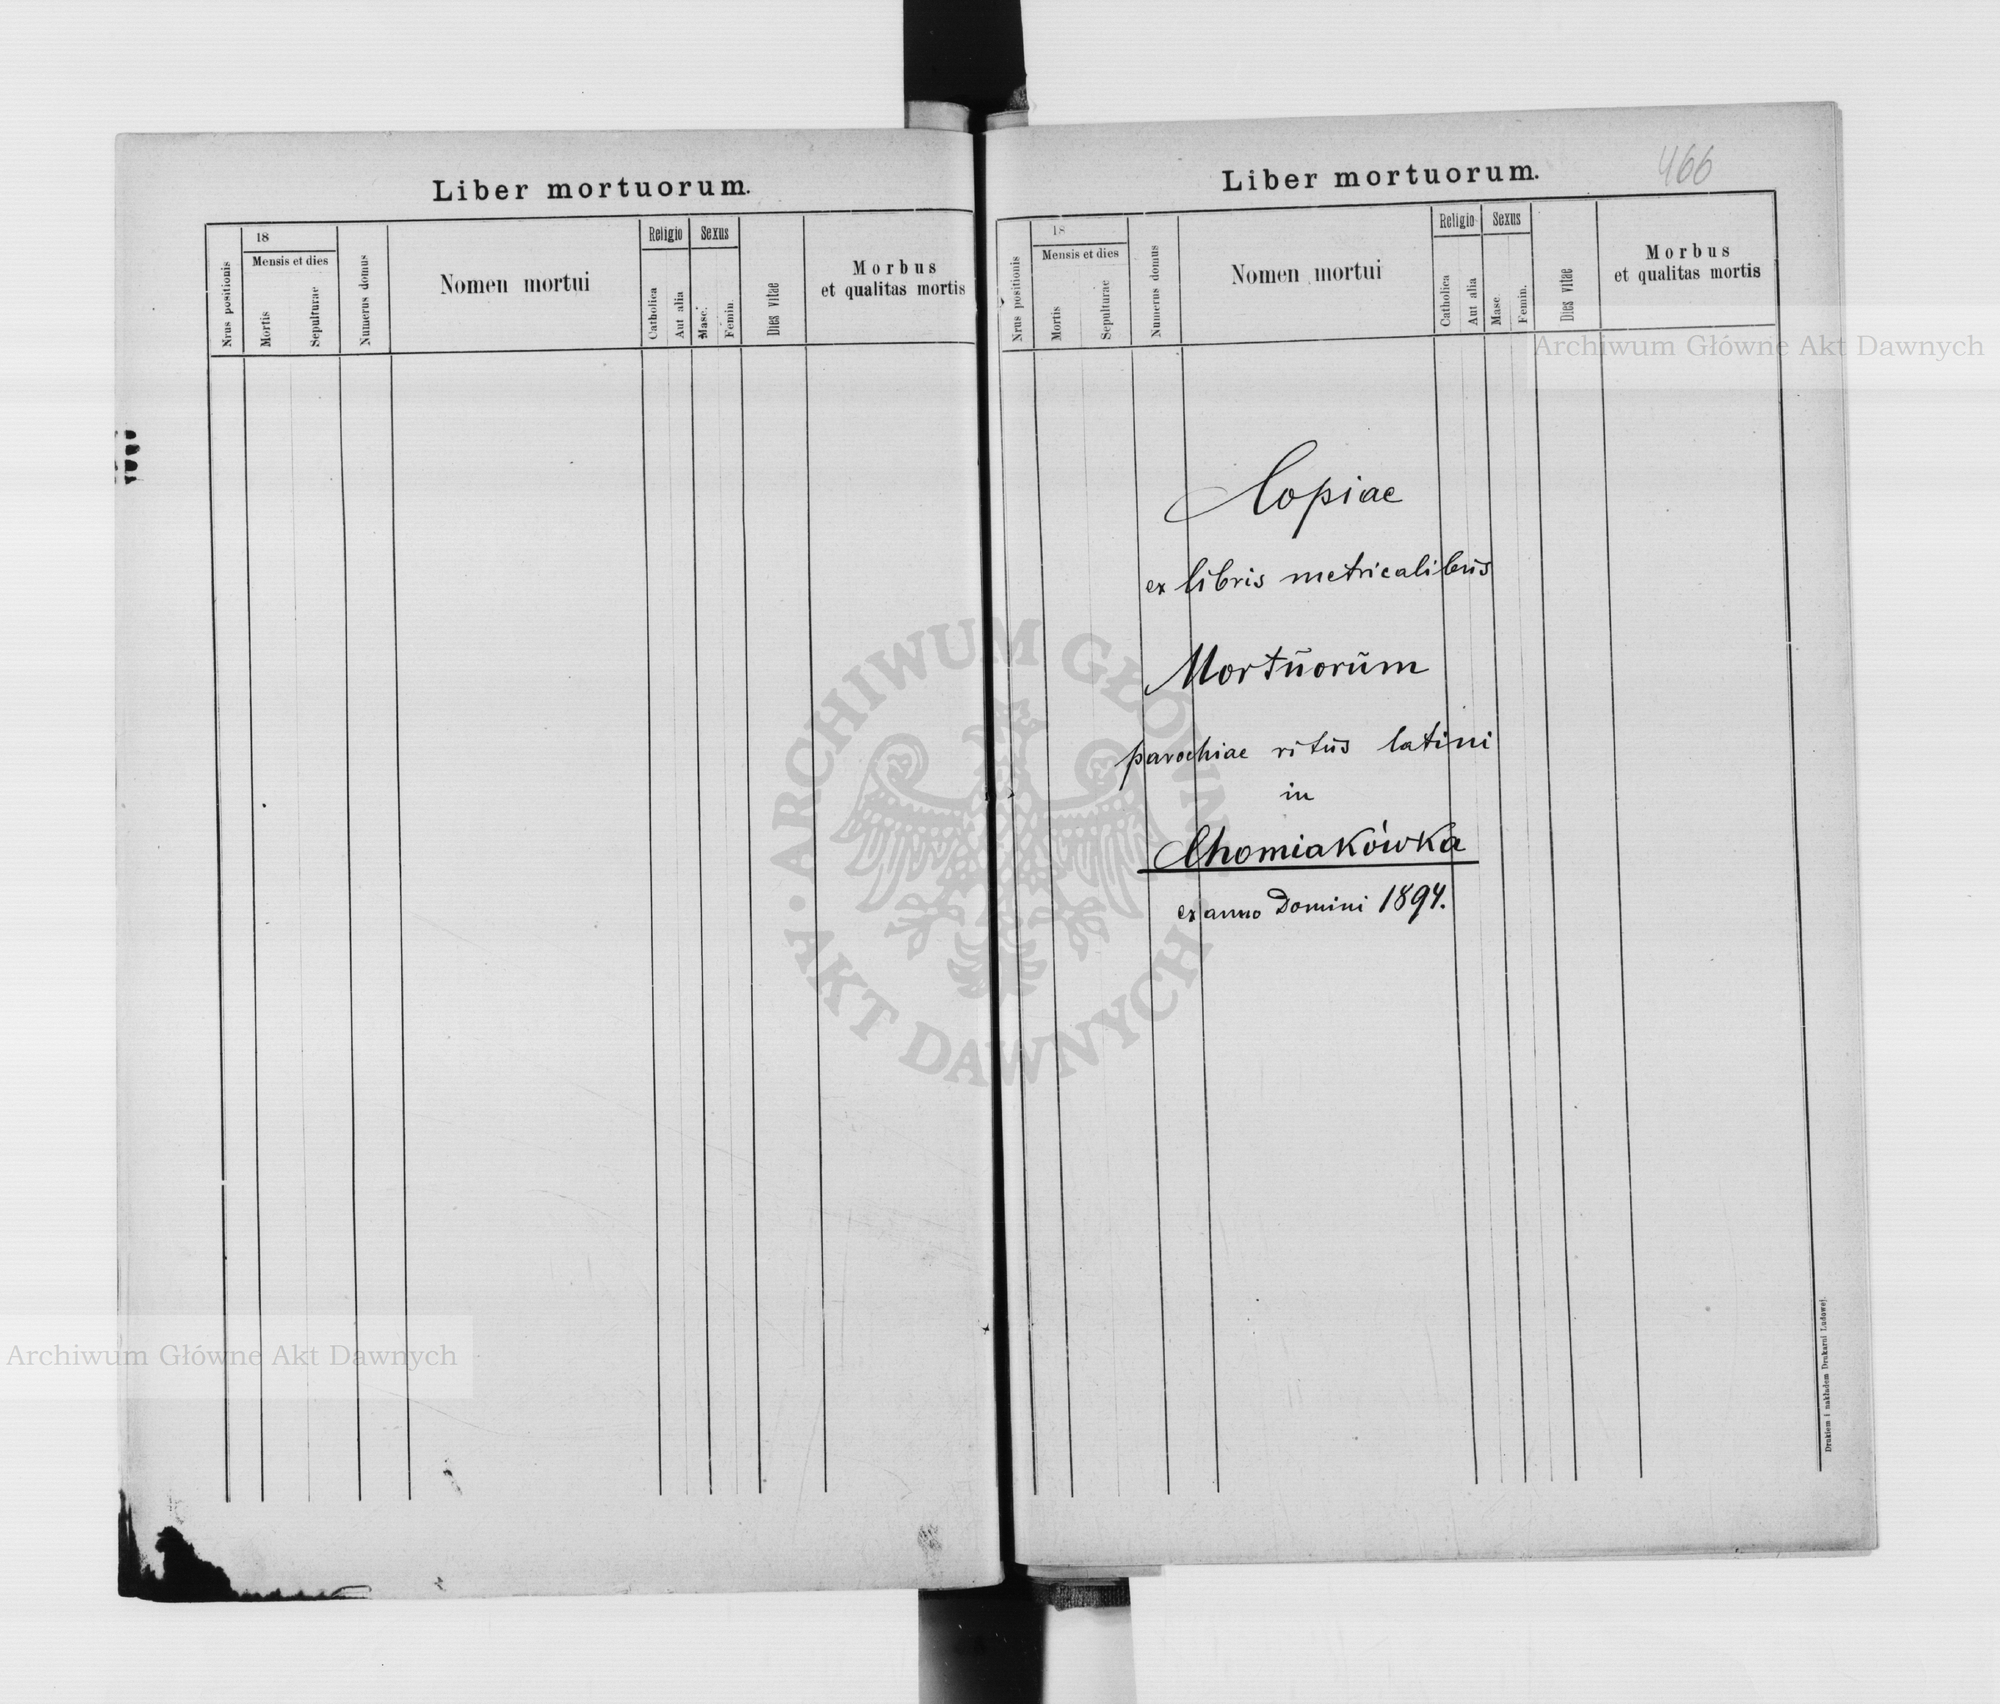 Liber mortuorum.
Nrus positionis
18
Mensis et dies
Mortis
Sepulturae
Numerus domus
Nomen mortui
Religio
Catholica
Aut alia
Sexus
Masc.
Femin.
Dies vitae
Morbus
et qualitas mortis
Liber mortuorum.
466
Nrus positionis
18
Mensis et dies
Mortis
Sepulturae
Numerus domus
Nomen mortui
Religio
Catholica
Aut alia
Sexus
Masc.
Femin.
Dies vitae
Morbus
et qualitas mortis
Archiwum Główne Akt Dawnych
Copiae
ex libris metricalibus
Mortuorum
parochiae ritus latini
in
Chomiakówka
ex anno Domini 1894.
ARCHIWUM GŁÓWNE AKT DAWNYCH
Archiwum Główne Akt Dawnych
Drukiem i nakładem Drukarni Ludowej.